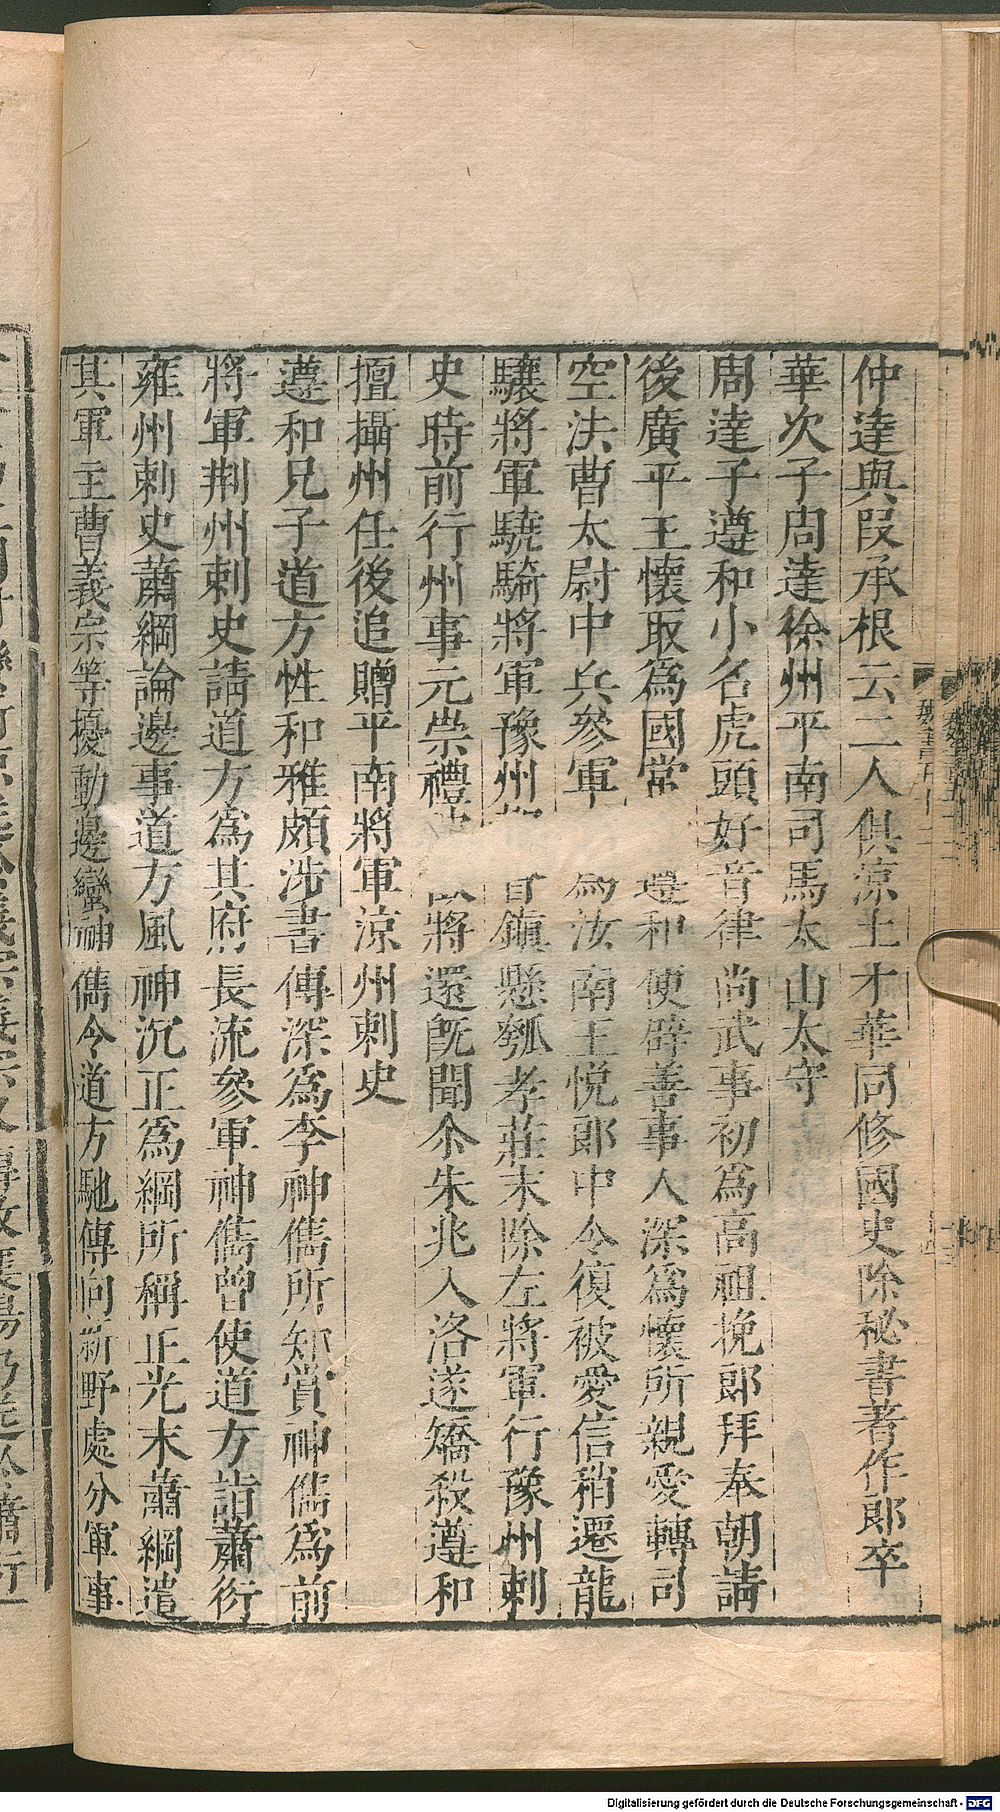 仲達與段承根云二人俱涼土才華同修國史除秘書著作郎卒
華次子周達徐州平南司馬太山太守
周達子遵和小名虎頭好音律尚武事初爲高祖挽郎拜奉朝請
後廣平王懷取爲國常遵和便辟善事人深爲懷所親愛轉司
空法曹太尉中兵參軍爲汝南王悅郎中令復被愛信稍遷龍
驤將軍驍騎將軍豫州鎮懸瓠孝莊末除左將軍行豫州刺
史時前行州事元崇禮將還旣聞尒朱兆入洛遂矯殺遵和
擅攝州任後追贈平南將軍涼州刺史
遵和兄子道方性和雅頗涉書傳深爲李神儁所知賞神儁爲前
將軍荆州刺史請道方爲其府長流參軍神儁曾使道方詣蕭衍
雍州刺史蕭綱論邊事道方風神沉正爲綱所稱正光末蕭綱遣
其軍主曹義宗等擾動邊蠻神儁令道方馳傳向新野處分軍事
Digitalisierung gefördert durch die Deutsche Forschungsgemeinschaft - DFG